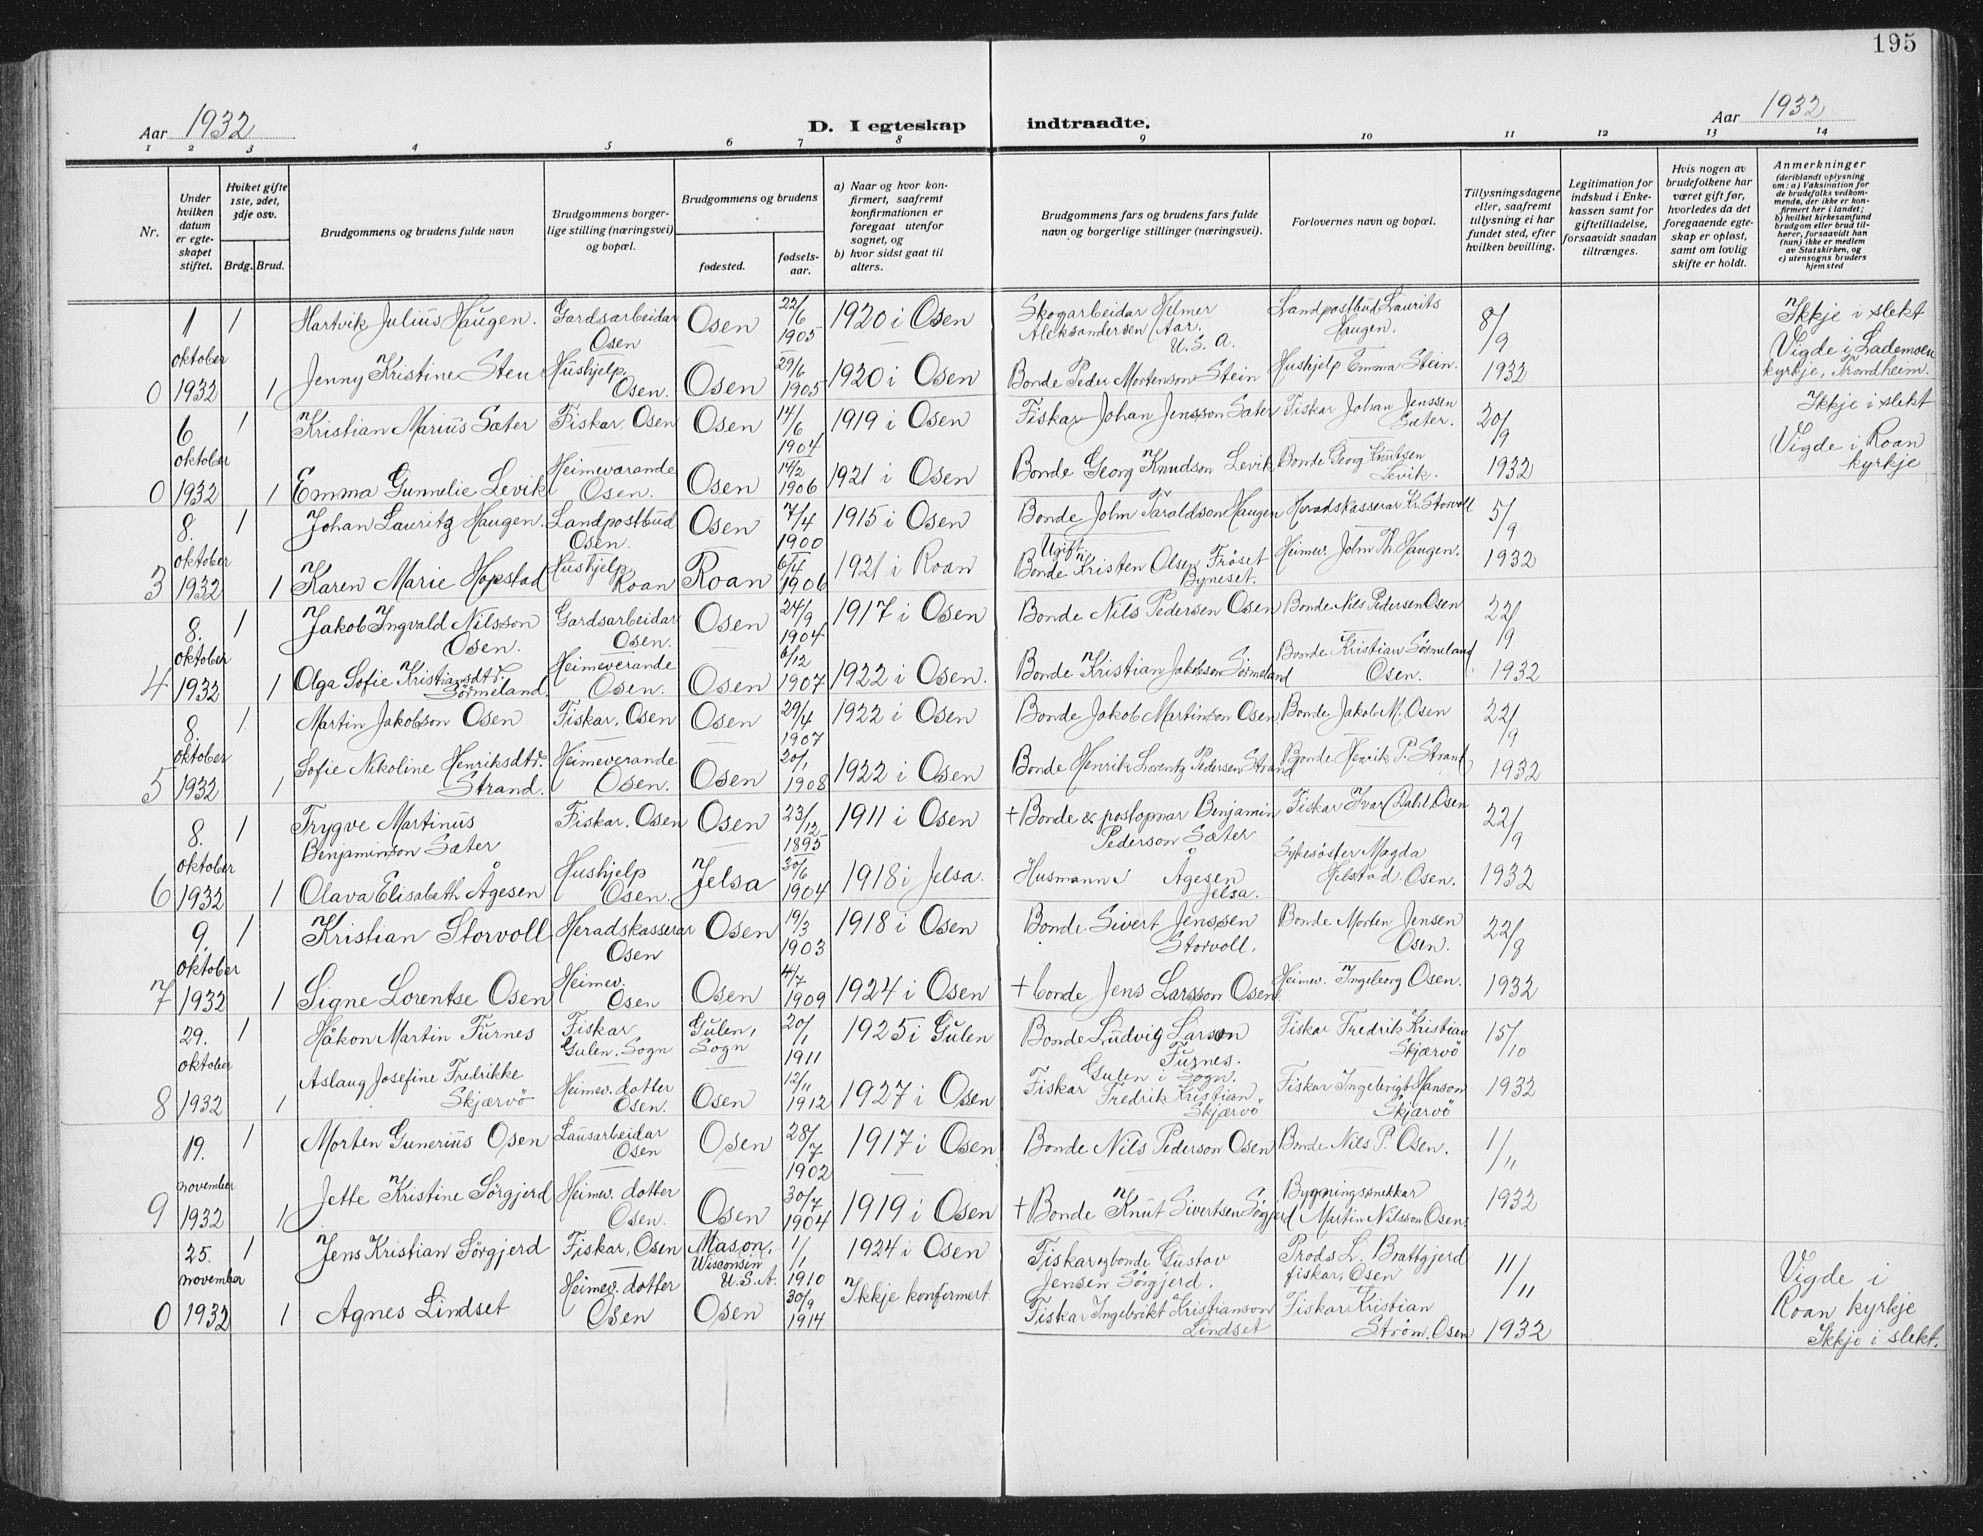 195
Aar 1932
D. I egteskap indtraadte.
Aar 1932
1 2 3 4 5 6 7 8 9 10 11 12 13 14
Nr.
Under hvilken datum er egteskapet stiftet.
Hviket gifte 1ste, 2det, 3dje osv.
Brdg. Brud.
Brudgommens og brudens fulde navn
Brudgommens borgerlige stilling (næringsvei) og bopæl.
Brudgommens og brudens
fødested.
fødselsaar.
a) Naar og hvor konfirmert, saafremt konfirmationen er foregaat utenfor sognet, og
b) hvor sidst gaat til alters.
Brudgommens fars og brudens fars fulde navn og borgerlige stillinger (næringsvei).
Forlovernes navn og bopæl.
Tillysningsdagene eller, saafremt tillysning ei har fundet sted, efter hvilken bevilling.
Legitimation for indskud i Enkekassen samt for giftetilladelse, forsaavidt saadan tiltrænges.
Hvis nogen av brudefolkene har været gift før, hvorledes da det foregaaende egteskap er opløst, samt om lovlig skifte er holdt.
Anmerkninger
(deriblandt oplysning om: a) Vaksination for de brudefolks vedkommende, der ikke er konfirmert her i landet; b) hvilket kirkesamfund brudgom eller brud tilhører, forsaavidt han (hun) ikke er medlem av Statskirken, og c) utensogns bruders hjemsted
1 1 Hartvik Julius Haugen. Gardsarbeidar Osen Osen 22/6 1905 1920 i Osen Skogarbeidar Helmer Aleksandersen Aar. U.S.A. Landpostbud Laurits Haugen. 8/9 Ikkje i slekt
0 oktober 1932 1 Jenny Kristine Sten Hushjelp, Osen. Osen 29/6 1905 1920 i Osen Bonde Peder Mortenson Stein Hushjelp Emma Stein. 1932 Vigde i Lademoen kyrkje, Trondheim.
6 1 Kristian Marius Sæter Fiskar, Osen Osen 14/6 1904 1919 i Osen Fiskar Johan Jensson Sæter Fiskar Johan Jenssen Sæter. 20/9 Ikkje i slekt
0 oktober 1932 1 Emma Gunnelie Levik Heimeværande Osen. Osen 14/2 1906 1921 i Osen Bonde Georg Knudson Levik Bonde Georg Knutsen Levik. 1932 Vigde i Roan kyrkje
8. 1 Johan Lauritz Haugen. Landpostbud Osen. Osen 7/4 1900 1915 i Osen Bonde John Taraldson Haugen Heradskasserar Kr. Storvoll 5/9
3 oktober 1932 1 Karen Marie Hopstad Hushjelp, Roan Roan 6/4 1906 1921 i Roan Ugift. Bonde Kristen Olsen Fröset Byneset. Heimev. John Th. Haugen. 1932
8. 1 Jakob Ingvald Nilsson Osen. Gardsarbeidar Osen. Osen 24/9 1904 1917 i Osen Bonde Nils Pedersen Osen Bonde Nils Pedersen Osen 22/9
4 oktober 1932 1 Olga Sofie Kristiansdtr. Sörmeland. Heimeverande Osen. Osen 6/12 1907 1922 i Osen. Bonde Kristian Jakobson Sörmeland Bonde Kristian Sörmeland Osen. 1932
8. 1 Martin Jakobson Osen Fiskar, Osen Osen 29/4 1907 1922 i Osen Bonde Jakob Martinson Osen Bonde Jakob M. Osen 22/9
5 oktober 1932 1 Sofie Nikoline Henriksdtr. Strand. Heimeverande Osen. Osen 20/1 1908 1922 i Osen Bonde Henrik Lorentz Pedersen Strand Bonde Henrik P. Strand 1932
8. 1 Trygve Martinus Benjaminson Sæter Fiskar, Osen Osen 23/12 1895 1911 i Osen + Bonde & postopnar Benjamin Pederson Sæter Fiskar Ivar Dahl, Osen 22/9
6 oktober 1932 1 Olava Elisabeth Ågesen Hushjelp Osen. Jelsa 30/6 1904 1918 i Jelsa. Husmann Ågesen Jelsa. Sykesöster Magda Helstad. Osen. 1932
9. 1 Kristian Storvoll Heradskasserar Osen Osen 19/3 1903 1918 i Osen Bonde Sivert Jenssen Storvoll. Bonde Morten Jensen Osen. 22/9
7 oktober 1932 1 Signe Lorentse Osen Heimev. Osen Osen 4/7 1909 1924 i Osen + bonde Jens Larsson Osen Heimev. Ingeborg Osen. 1932
29. 1 Håkon Martin Furnes Fiskar Gulen, Sogn Gulen, Sogn 20/1 1911 1925 i Gulen Bonde Ludvig Larson Furnes. Gulen i Sogn. Fiskar Fredrik Kristian Skjærvö 15/10
8 oktober 1932 1 Aslaug Josefine Fredrikke Skjærvö Heimev. dotter Osen. Osen 12/11 1912 1927 i Osen Fiskar Fredrik Kristian Skjærvö Fiskar Ingebrigt Hanson Skjærvö 1932
19. 1 Morten Gunerius Osen Lausarbeidar Osen Osen 28/7 1902 1917 i Osen Bonde Nils Pederson Osen Bonde Nils P. Osen. 1/11
9 november 1932 1 Jette Kristine Sörgjerd Heimev. dotter Osen. Osen 30/7 1904 1919 i Osen + Bonde Knut Sivertsen Sörgjerd Bygningssnekkar Martin Nilsson Osen. 1932
25. 1 Jens Kristian Sörgjerd Fiskar, Osen Mason, Wisconsin U.S.A. 1/1 1910 1924 i Osen Fiskar og bonde Gustav Jensen Sörgjerd. Prods L. Brattgjerd fiskar, Osen 11/11 Vigde i Roan kyrkje
0 november 1932 1 Agnes Lindset Heimev. dotter Osen Osen 30/9 1914 Ikkje konfirmert Fiskar Ingebrikt Kristianson Lindset Fiskar Kristian Ström, Osen 1932 Ikkje i slekt.